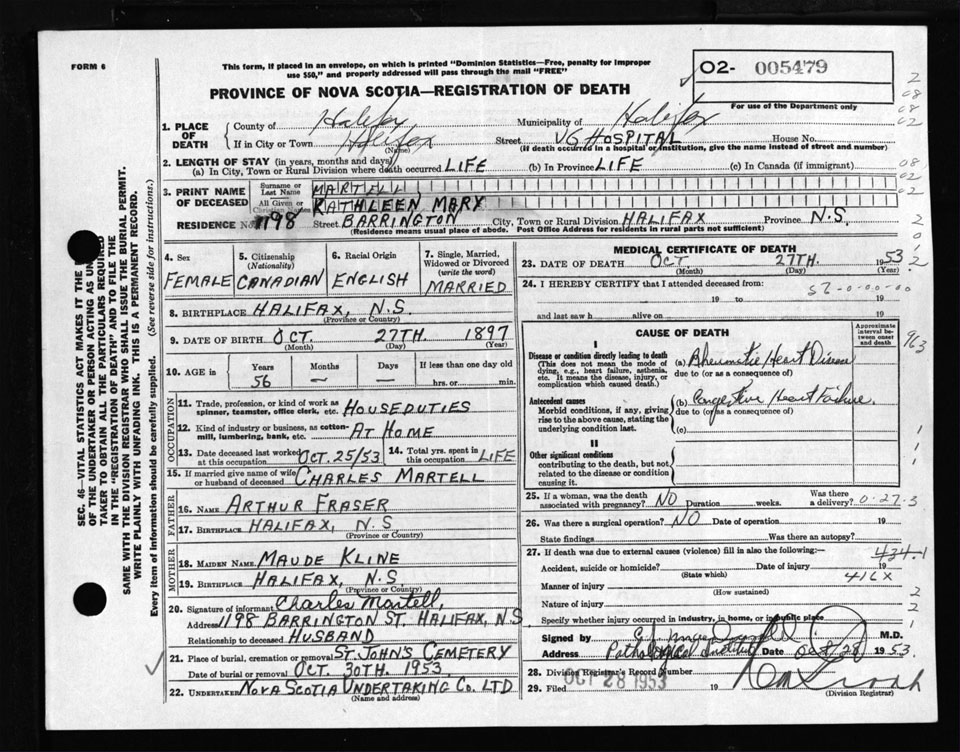 FORM 6
This form, if placed in an envelope, on which is printed "Dominion Statistics—Free, penalty for improper
use $50," and properly addressed will pass through the mail "FREE"
O2- 005479
For use of the Department only
PROVINCE OF NOVA SCOTIA—REGISTRATION OF DEATH
1. PLACE OF DEATH
County of Halifax Municipality of Halifax
If in City or Town Halifax (Name) Street VG HOSPITAL House No.
(If death occurred in a hospital or institution, give the name instead of street and number)
2. LENGTH OF STAY (in years, months and days)
(a) In City, Town or Rural Division where death occurred LIFE (b) In Province LIFE (c) In Canada (if immigrant)
3. PRINT NAME OF DECEASED
Surname or Last Name MARTELL
All Given or Christian Names KATHLEEN MARY
RESIDENCE No. 1198 Street BARRINGTON City, Town or Rural Division HALIFAX Province N.S.
(Residence means usual place of abode. Post Office Address for residents in rural parts not sufficient)
4. Sex FEMALE
5. Citizenship (Nationality) CANADIAN
6. Racial Origin ENGLISH
7. Single, Married, Widowed or Divorced (write the word) MARRIED
8. BIRTHPLACE HALIFAX, N.S.
(Province or Country)
9. DATE OF BIRTH OCT. 27TH. 1897
(Month) (Day) (Year)
10. AGE in Years 56 Months — Days — If less than one day old hrs. or min.
OCCUPATION
11. Trade, profession, or kind of work as spinner, teamster, office clerk, etc. HOUSEDUTIES
12. Kind of industry or business, as cotton-mill, lumbering, bank, etc. AT HOME
13. Date deceased last worked at this occupation OCT. 25/53 14. Total yrs. spent in this occupation LIFE
15. If married give name of wife or husband of deceased CHARLES MARTELL
FATHER
16. NAME ARTHUR FRASER
17. BIRTHPLACE HALIFAX, N.S.
(Province or Country)
MOTHER
18. MAIDEN NAME MAUDE KLINE
19. BIRTHPLACE HALIFAX, N.S.
(Province or Country)
20. Signature of informant Charles Martell,
Address 1198 BARRINGTON ST. HALIFAX, N.S
Relationship to deceased HUSBAND
21. Place of burial, cremation or removal ST. JOHN'S CEMETERY
Date of burial or removal OCT. 30TH. 1953.
22. UNDERTAKER NOVA SCOTIA UNDERTAKING CO. LTD
(Name and address)
MEDICAL CERTIFICATE OF DEATH
23. DATE OF DEATH OCT 27TH. 1953
(Month) (Day) (Year)
24. I HEREBY CERTIFY that I attended deceased from:
57-0-00-00
19 to 19
and last saw h alive on 19
CAUSE OF DEATH
Approximate interval between onset and death
I
Disease or condition directly leading to death
(This does not mean the mode of dying, e.g., heart failure, asthenia, etc. It means the disease, injury, or complication which caused death.)
(a) Rheumatic Heart Disease
due to (or as a consequence of)
Antecedent causes
Morbid conditions, if any, giving rise to the above cause, stating the underlying condition last.
(b) Congestive Heart Failure.
due to (or as a consequence of)
(c)
II
Other significant conditions
contributing to the death, but not related to the disease or condition causing it.
25. If a woman, was the death associated with pregnancy? NO Duration weeks. Was there a delivery? 0-27-3
26. Was there a surgical operation? NO Date of operation 19
State findings Was there an autopsy?
27. If death was due to external causes (violence) fill in also the following:— 434-1
Accident, suicide or homicide? (State which) Date of injury 19
416X
Manner of injury
(How sustained)
Nature of injury
Specify whether injury occurred in industry, in home, or in public place
Signed by M.D.
Address Pathological Institute Date Oct 28 1953.
28. Division Registrar's Record Number
29. Filed OCT 28 1953 19
(Division Registrar)
SEC. 46—VITAL STATISTICS ACT MAKES IT THE
OF THE UNDERTAKER OR PERSON ACTING AS UN
TAKER TO OBTAIN ALL THE PARTICULARS REQUIRED
IN THE "REGISTRATION OF DEATH" AND TO FILE THE
SAME WITH THE DIVISION REGISTRAR WHO SHALL ISSUE THE BURIAL PERMIT.
WRITE PLAINLY WITH UNFADING INK. THIS IS A PERMANENT RECORD.
Every item of information should be carefully supplied. (See reverse side for instructions.)
963